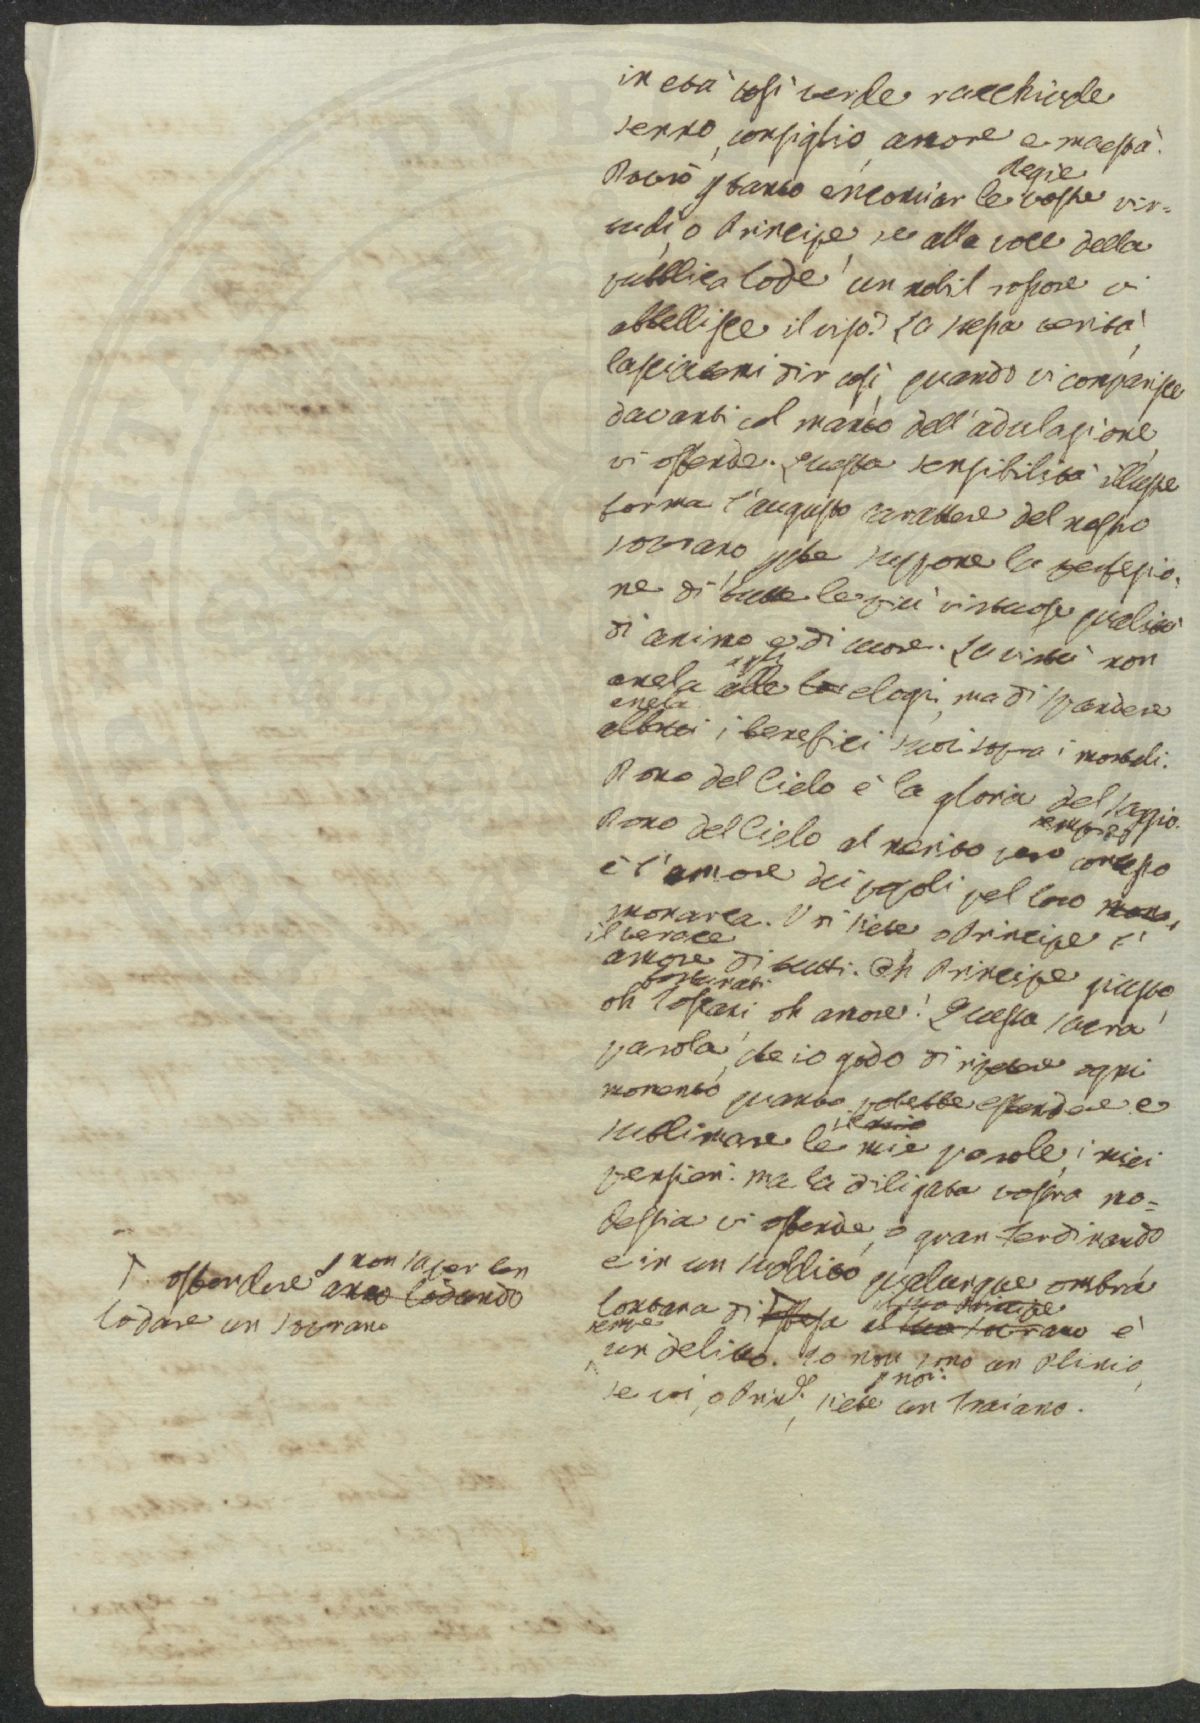 in età così verde racchiude
senno, consiglio, amore e maestà.
Dovrò tanto encomiar le vostre Regie vir=
tudi, o Principe, se alla voce della
pubblica lode un nobil rossore vi
abbellisce il viso? La stessa verità,
lasciatemi dir così, quando vi comparisce
davanti col manto dell'adulazione
vi offende. Questa sensibilità illustre
forma l'augusto carattere del nostro
sovrano, che suppone la perfezio=
ne di tutte le più virtuose qualità
di animo e di cuore. La virtù non
anela agli elogi, ma di spandere
anela i benefici suoi sopra i mortali.
Dono del Cielo è la gloria del saggio.
Dono del Cielo al merito vero sempre concesso
è l'amore dei popoli pel loro
monarca. Voi siete, o Principe è
il verace
amore di tutti. Oh Principe giusto,
oh fortunati Toscani oh amore! Questa sacra
parola, che io godo di ripetere ogni
momento quanto potrebbe estendere e
sublimare le mie parole, i miei
pensieri. ma la diligata vostra mo=
destia vi offende, o gran Ferdinando
e in un suddito qualunque ombra
lontana di
offendere non saper ben
lodare un sovrano
sempre è
un delitto. Io non sono un Plinio,
se voi, o Principe, siete p noi un Traiano.